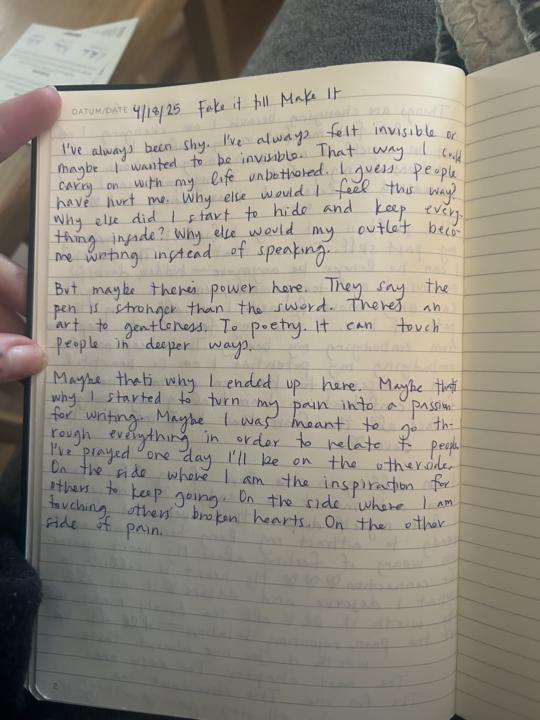 DATUM/DATE 4/18/25 Fake it till Make It
I've always been shy. I've always felt invisible or
maybe I wanted to be invisible. That way I could
carry on with my life unbothered. I guess people
have hurt me. Why else would I feel this way?
Why else did I start to hide and keep every-
thing inside? Why else would my outlet beco-
me writing instead of speaking.
But maybe there's power here. They say the
pen is stronger than the sword. There's an
art to gentleness. To poetry. It can touch
people in deeper ways.
Maybe that's why I ended up here. Maybe that's
why I started to turn my pain into a passion
for writing. Maybe I was meant to go th-
rough everything in order to relate to people.
I've prayed one day I'll be on the otherside.
On the side where I am the inspiration for
others to keep going. On the side where I am
touching others' broken hearts. On the other
side of pain.
2